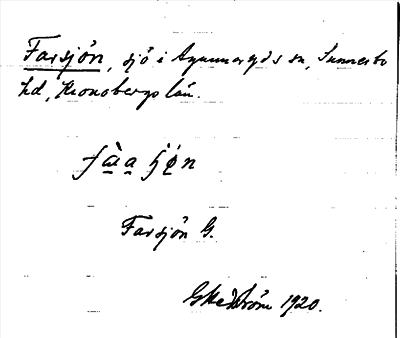 Farsjön, sjö i Agunnaryds sn, Sunnerbo
hd, Kronobergs län.
Farsjön G.
1920.